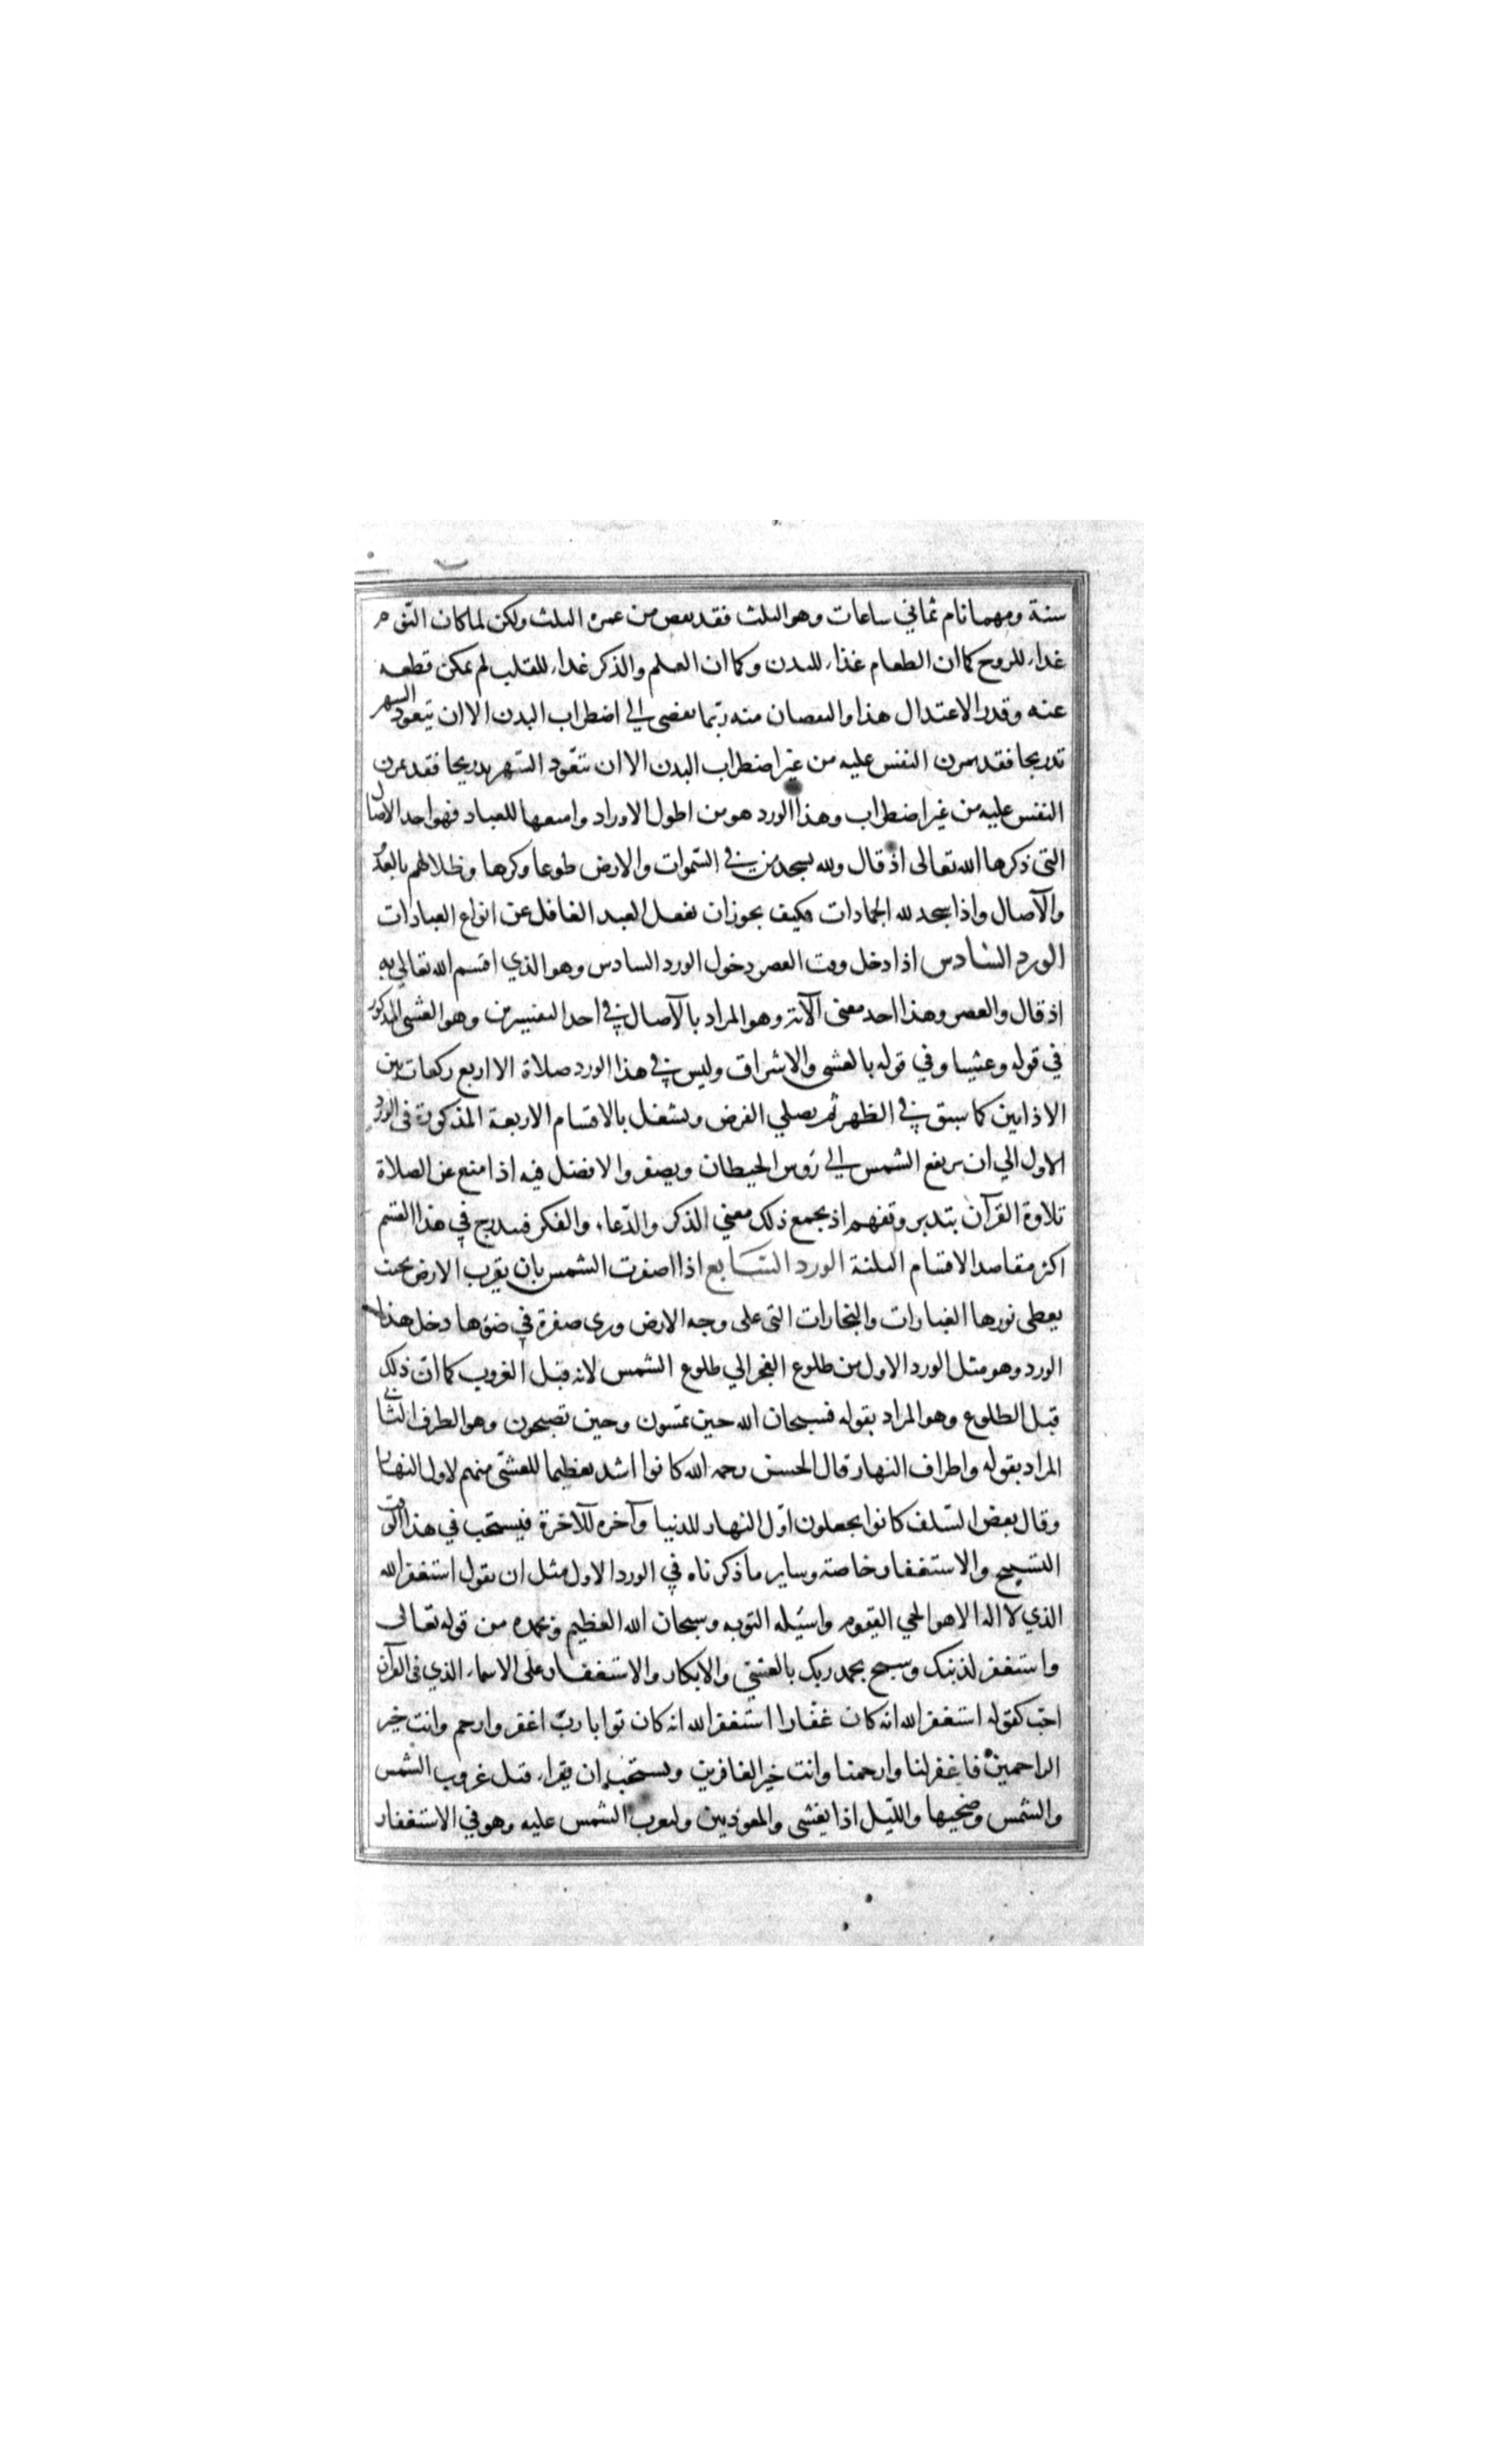 سنة ومهما نام ثماني ساعات وهو الثلث فقد نقص من عمره الثلث ولكن لما كان النوم
غذاء للروح كما ان الطعام غذاء للبدن وكما ان العلم والذكر غذاء للقلب لم يمكن قطعه
عنه وقدر الاعتدال هذا والنقصان منه ربّما يفضي الي اضطراب البدن الا ان يتعود السهر
تدريجا فقد يمرن النفس عليه من غير اضطراب البدن الا ان يتعوّد السّهر تدريجا فقد يمرن
النفس عليه من غير اضطراب وهذا الورد هو من اطول الاوراد وامتعها للعباد فهو احد الآصال
التي ذكرها الله تعالى اذ قال ولله يسجد من في السّموات والارض طوعا وكرها وظلالهم بالغدو
والآصال واذا سجد لله الجمادات فكيف يجوز ان يغفل العبد الغافل عن انواع العبادات
الورد السّادس اذا دخل وقت العصر دخول الورد السادس وهو الذي اقسم الله تعالى به
اذ قال والعصر وهذا احد معنى الآية وهو المراد بالآصال في احد التفسيرين وهو العشي المذكور
في قوله وعشيا وفي قوله بالعشي والاشراق وليس في هذا الورد صلاة الا اربع ركعات بين
الاذانين كما سبق في الظهر ثم يصلي الفرض ويشغل بالاقسام الاربعة المذكورة في الورد
الاول الي ان يرتفع الشمس الي رؤس الحيطان ويصفر والافضل فيه اذا منع عن الصلاة
تلاوة القرآن بتدبر وتفهم اذ يجمع ذلك معني الذكر والدّعاء والفكر فيندرج في هذا القسم
اكثر مقاصد الاقسام الثلثة الورد السّابع اذا اصفرت الشمس بان يقرب الارض بحيث
يغطى نورها الغبارات والبخارات التي على وجه الارض ويرى صفرة في ضوءها دخل هذا
الورد وهو مثل الورد الاول من طلوع الفجر الي طلوع الشمس لانه قبل الغروب كما انّ ذلك
قبل الطلوع وهو المراد بقوله فسبحان الله حين تمسون وحين تصبحون وهو الطرف الثاني
المراد بقوله واطراف النهار قال الحسن رحمه الله كانوا اشد تعظيما للعشيّ منهم لاول النهار
وقال بعض السّلف كانوا يجعلون اوّل النهار للدنيا وآخره للآخرة فيستحب في هذا الوقت
التسبيح والاستغفار خاصة وساير ما ذكرناه في الورد الاول مثل ان يقول استغفر الله
الذي لا اله الا هو الحي القيوم واسئله التوبه وسبحان الله العظيم وبحمده من قوله تعالى
واستغفر لذنبك وسبح بحمد ربك بالعشيّ والابكار والاستغفار على الاسماء الذي في القرآن
احبّ كقوله استغفر الله انه كان غفّارا استغفر الله انه كان توابا ربّ اغفر وارحم وانت خير
الراحمين فاغفر لنا وارحمنا وانت خير الغافرين ويستحب ان يقراء قبل غروب الشمس
والشمس وضحيها واللّيل اذا يغشى والمعوّذتين ولتغرب الشمس عليه وهو في الاستغفار